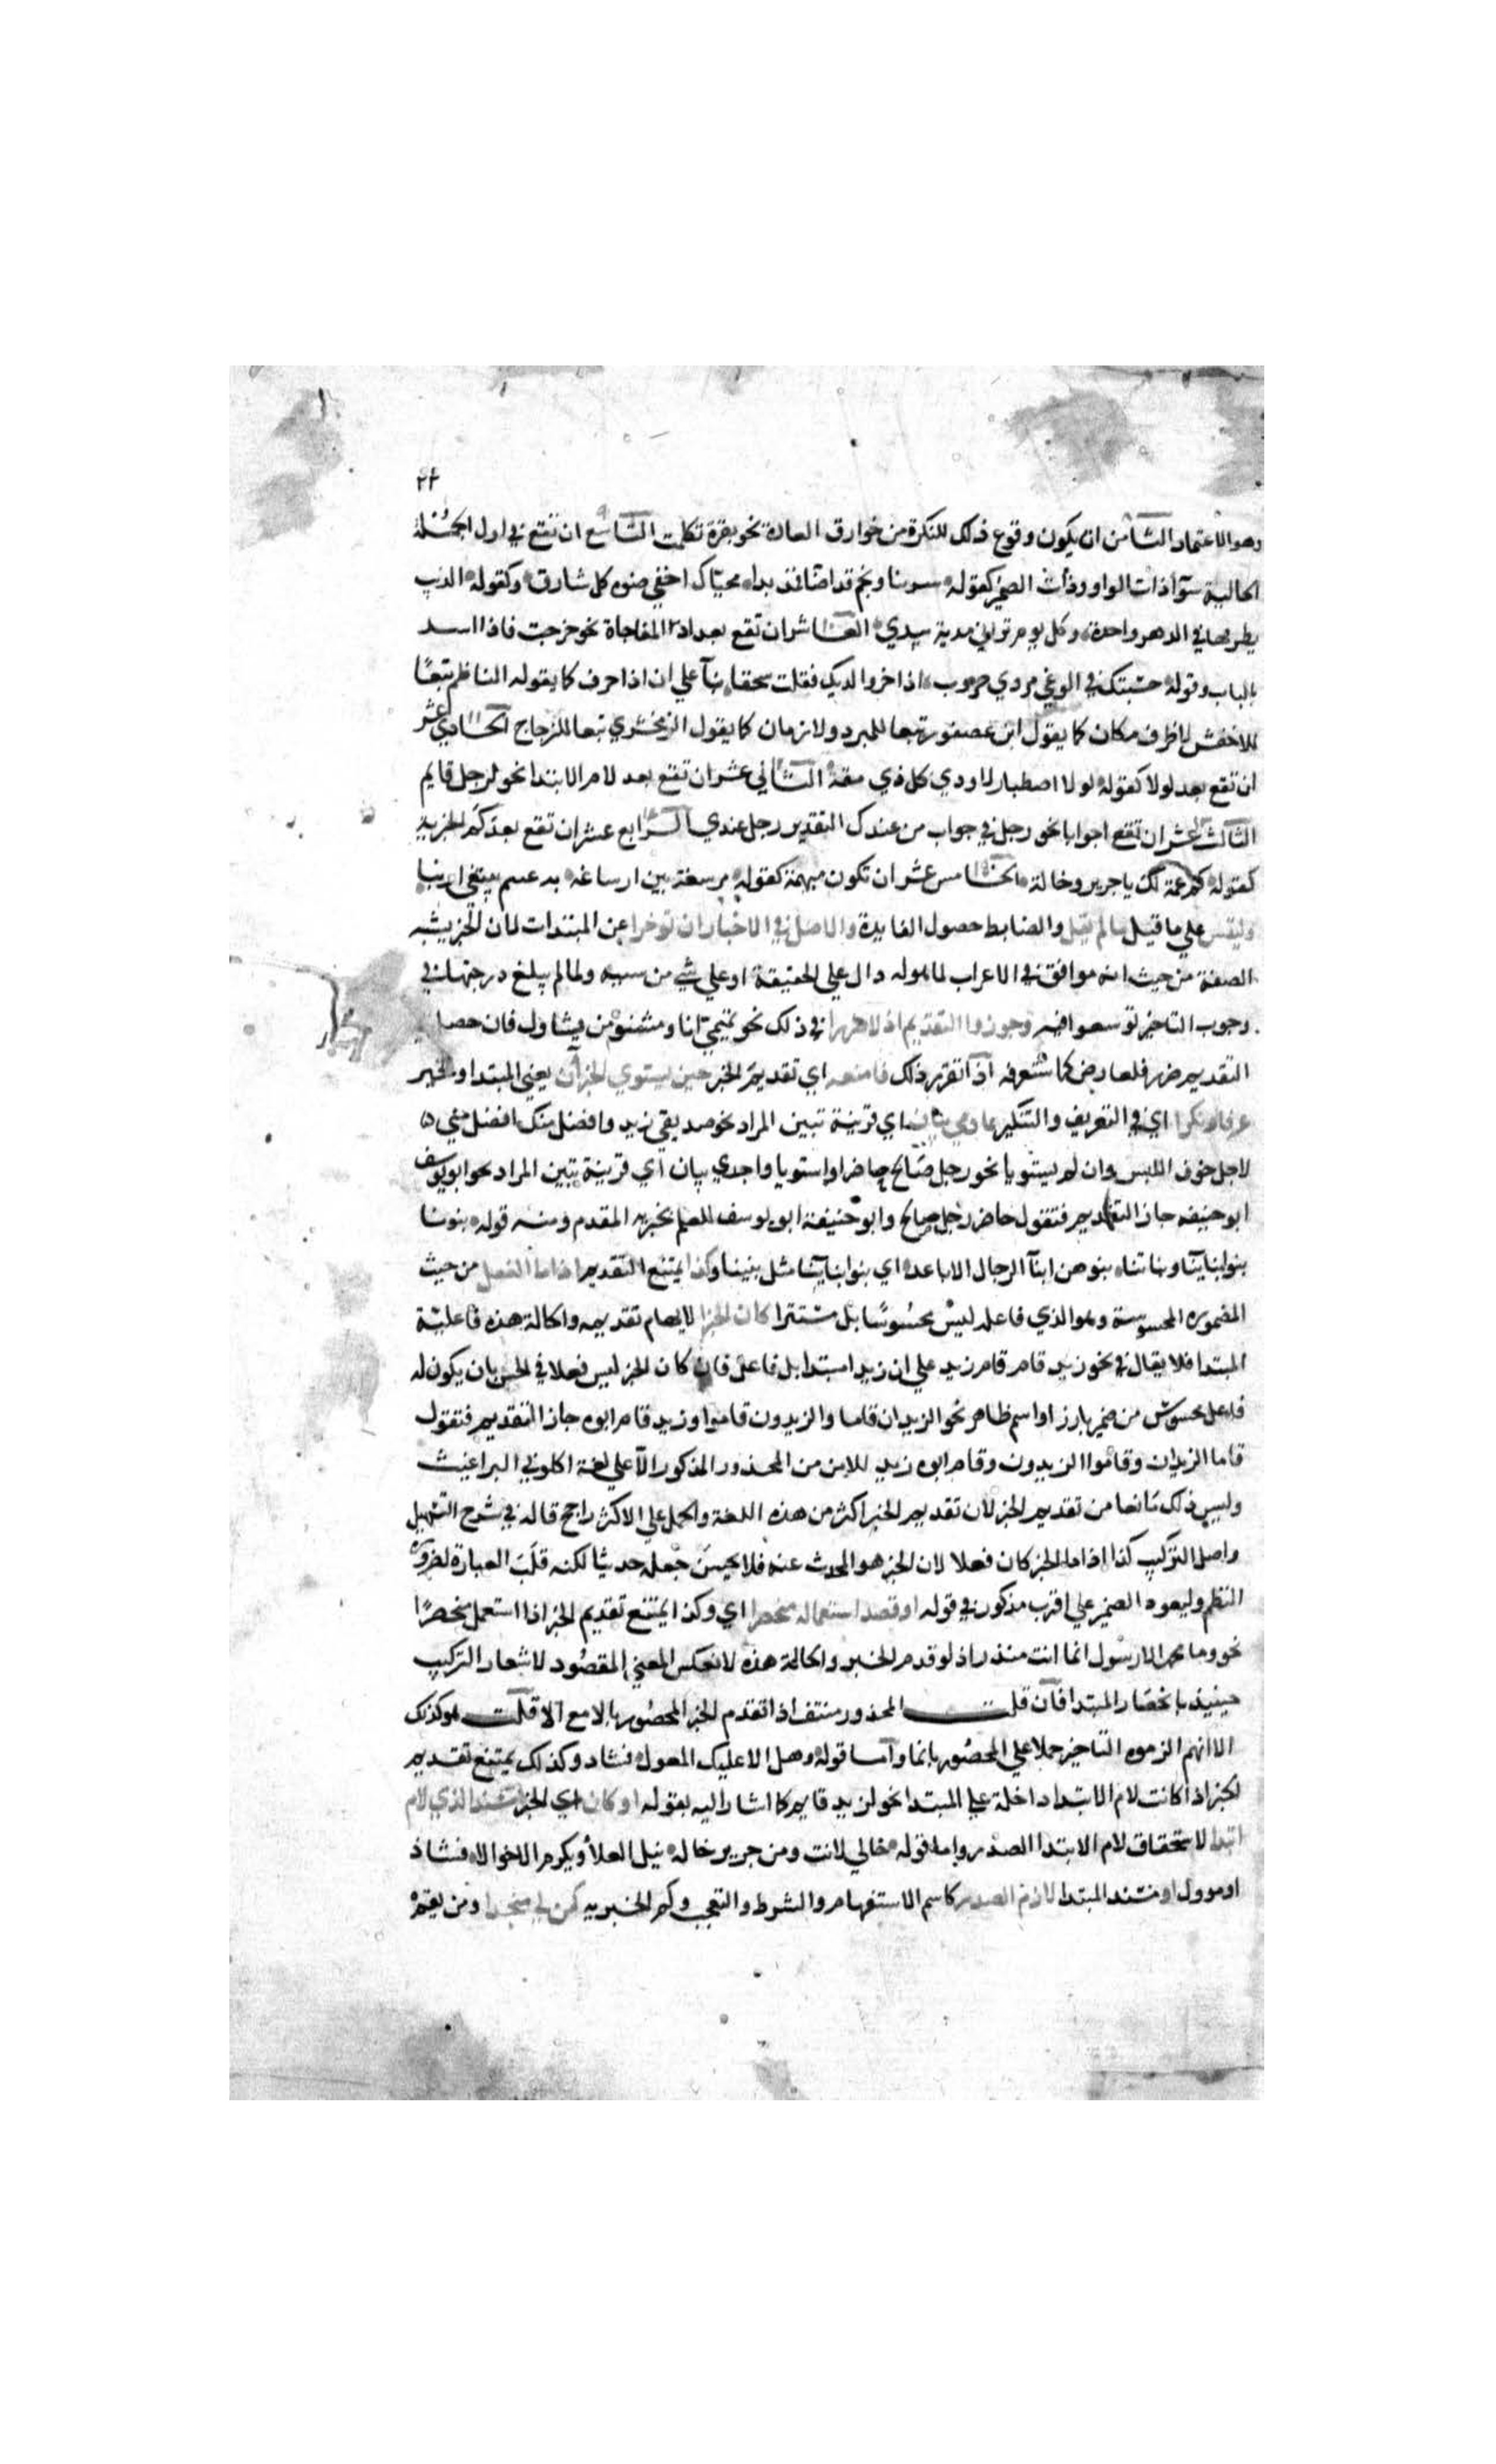 ٢٤
وهو الاعتماد الثامن ان يكون وقوع ذلك للنكرة من خوارق العادة نحو بقرة تكلمت التاسع ان تقع في اول الجملة
الحالية سوآ ذات الواو وذات الضمير كقوله سرينا ونجم قد اضآ فمذ بدا محياك اخفي ضوه كل شارق وكقوله الذيب
يطرقها في الدهر واحدة وكل يوم تراني مدية بيدي العاشر ان تقع بعد اذا المفاجاة نحو خرجت فاذا اسد
بالباب وقوله حسبتك في الوغي مردي حروب اذا خور لديك فقلت سحقا بنآ علي ان اذا حرف كما يقوله الناظم تبعًا
للاخفش لا ظرف مكان كما يقول ابن عصفور تبعا للمبرد ولا زمان كما يقول الزمخشري تبعا للزجاج الحادي عشر
ان تقع بعد لولا كقوله لولا اصطبار لاودي كل ذي مقة الثاني عشر ان تقع بعد لام الابتدا نحو لرجل قايم
الثالث عشر ان تقع اجوابا نحو رجل في جواب من عندك التقدير رجل عندي الرابع عشر ان تقع بعد كم الخبرية
كقوله كم عمة لك يا جرير وخالة الخامس عشر ان تكون مبهمة كقوله مرسعة بين ارساغه به عسم يبتغي ارنبا
وليقس علي ما قيل ما لم يقل والضابط حصول الفايدة والاصل في الاخبار ان توخرا عن المبتدات لان الخبر يشبه
الصفة من حيث انه موافق في الاعراب لما هو له دال علي الحقيقة او علي شي من سببه ولما لم يبلغ درجتها في
وجوب التاخير توسعوا فيه وجوزوا التقديم اذ لا ضررا في ذلك نحو تميمي انا ومشنوء من يشاوك فان حصل في
التقديم ضرر فلعارض كما ستعرفه اذا تقرر ذلك فامنعه اي تقديم الخبر حين يستوي الجزآن يعني المبتدا والخبر
عرفا ونكرا اي في التعريف والتنكير عادمي بيان اي قرينة تبين المراد نحو صديقي زيد وافضل منك افضل مني
لاجل خوف اللبس وان لم يستويا نحو رجل صالح حاضر او استويا واجدي بيان اي قرينة تبين المراد نحو ابو يوسف
ابو حنيفه جاز التقديم فتقول حاضر رجل صالح وابو حنيفة ابو يوسف للعلم بخبرية المقدم ومنه قوله بنونا
بنو ابنآينا وبناتنا بنوهن ابنآ الرجال الاباعد اي بنو ابنآينا مثل بنينا وكذا يمتنع التقديم اذا ما الفعل من حيث
الصورة المحسوسة وهو الذي فاعله ليس محسُوسًا بل مستترا كان الخبرا لايهام تقديمه والحالة هذه فاعلية
المبتدا فلا يقال في نحو زيد قام قام زيد علي ان زيد امبتدا بل فاعل فان كان الخبر ليس فعلا في الحس بان يكون له
فاعل محسوس من ضمير بارز او اسم ظاهر نحو الزيدان قاما والزيدون قاموا وزيد قام ابوه جاز التقديم فتقول
قاما الزيدان وقاموا الزيدون وقام ابوه زيد للامن من المحذور المذكور الا علي لغة اكلوني البراغيث
وليس ذلك مانعا من تقديم الخبر لان تقديم الخبر اكثر من هذه اللغة والحمل علي الاكثر راجح قاله في شرح التسهيل
واصل التركيب كذا اذا ما الخبر كان فعلا لان الخبر هو المحدث عنه فلا يحسن جعله حديثا لكنه قلَب العبارة لضرورة
النظم وليعود الضمير علي اقرب مذكور في قوله او قصد استعماله منحصرا اي وكذا يمتنع تقديم الخبر اذا استعمل منحصرًا
نحو وما محمد الا رسول انما انت منذر اذ لو قدم الخبر والحالة هذه لانعكس المعني المقصُود لاشعار التركيب
حينيذ بانحصَار المبتدا فان قلت المحذور منتف اذا تقدم الخبر المحصُور بالا مع الا قلت هو كذلك
الا انهم الزموه التاخير حملا علي المحصُور بانما وامّا قوله وهل الا عليك المعول فشاد وكذلك يمتنع تقديم
الخبر اذا كانت لام الابتدا داخلة علي المبتدا نحو لزيد قايم كما اشار اليه بقوله او كان اي الخبر مسندا لذي لام
ابتدا لاستحقاق لام الابتدا الصدر واما قوله خالي لانت ومن جرير خاله ينل العلا ويكرم الاخوالا فشاذ
او موول او مسند المبتدا لازم الصدر كاسم الاستفهام والشرط والتعجب وكم الخبريه كمن لي منجدا ومن يقم